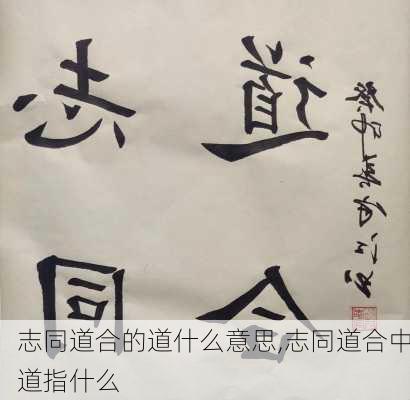 志同
道合
癸卯
志同道合的道什么意思,志同道合中
道指什么